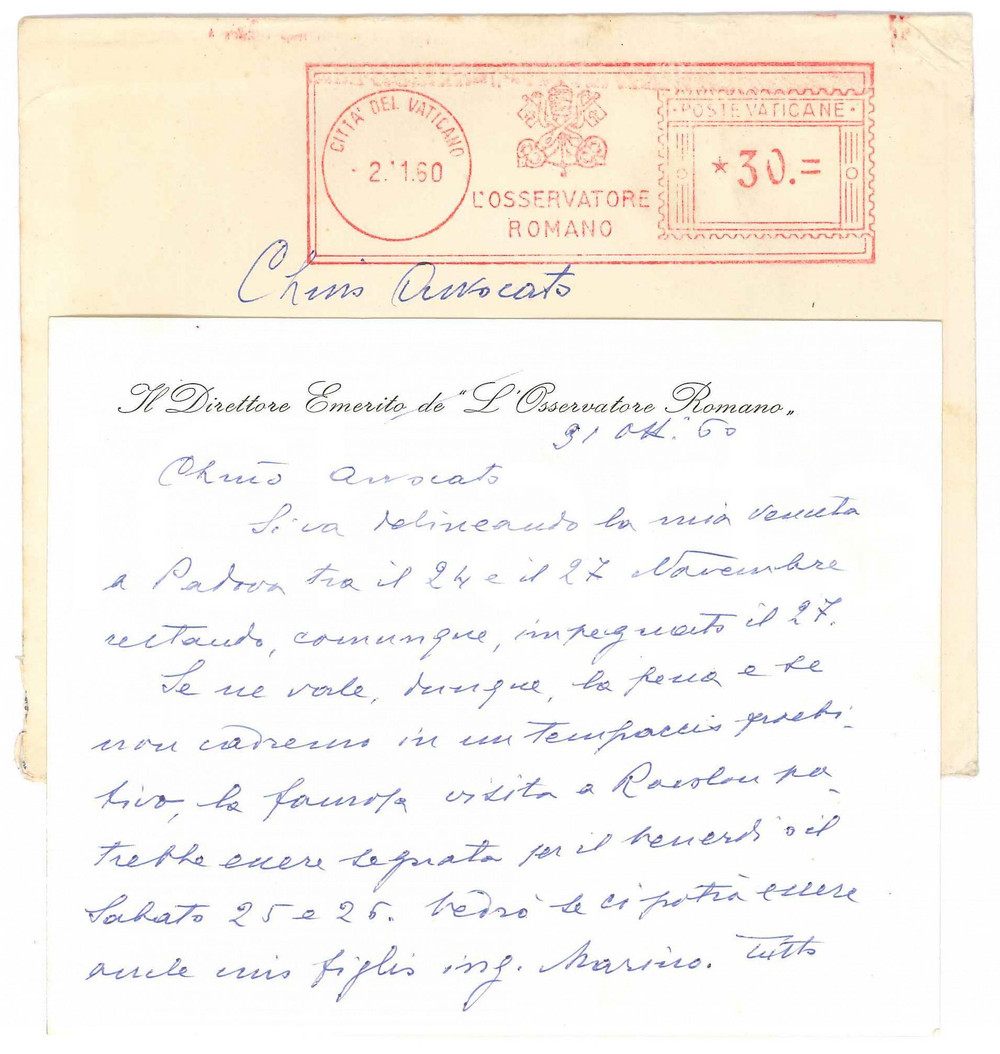 CITTA' DEL VATICANO
- 2.11.60
L'OSSERVATORE
ROMANO
POSTE VATICANE
*30.=
Ch.mo Avvocato
Il Direttore Emerito de "L'Osservatore Romano"
31 Ott. 60
Ch.mo Avvocato
Si va delineando la mia venuta
a Padova tra il 24 e il 27 Novembre
restando, comunque, impegnato il 27.
Se ne vale, dunque, la pena e se
non cadremo in un tempaccio proibi-
tivo, la famosa visita a po-
trebbe essere segnata per il Venerdì o il
Sabato 25 e 26. Vedrò se ci potrà essere
anche mio figlio ing. Marino. Tutto